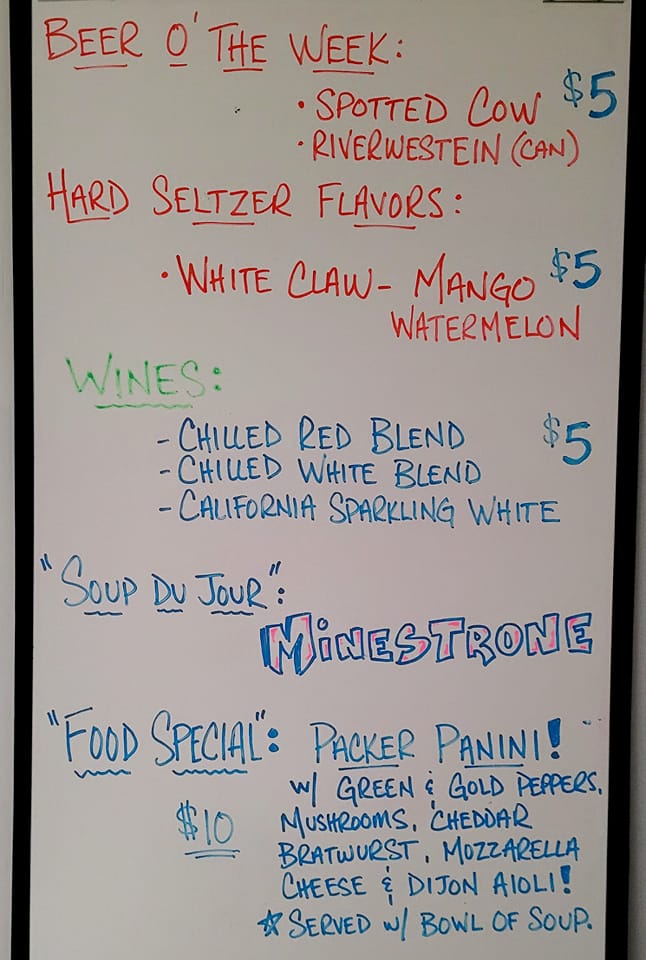 BEER O' THE WEEK:
• SPOTTED COW $5
• RIVERWESTEIN (CAN)
HARD SELTZER FLAVORS:
• WHITE CLAW - MANGO $5
WATERMELON
WINES:
- CHILLED RED BLEND $5
- CHILLED WHITE BLEND
- CALIFORNIA SPARKLING WHITE
"SOUP DU JOUR":
MINESTRONE
"FOOD SPECIAL": PACKER PANINI!
W/ GREEN & GOLD PEPPERS,
$10 MUSHROOMS, CHEDDAR
BRATWURST, MOZZARELLA
CHEESE & DIJON AIOLI!
☆ SERVED W/ BOWL OF SOUP.